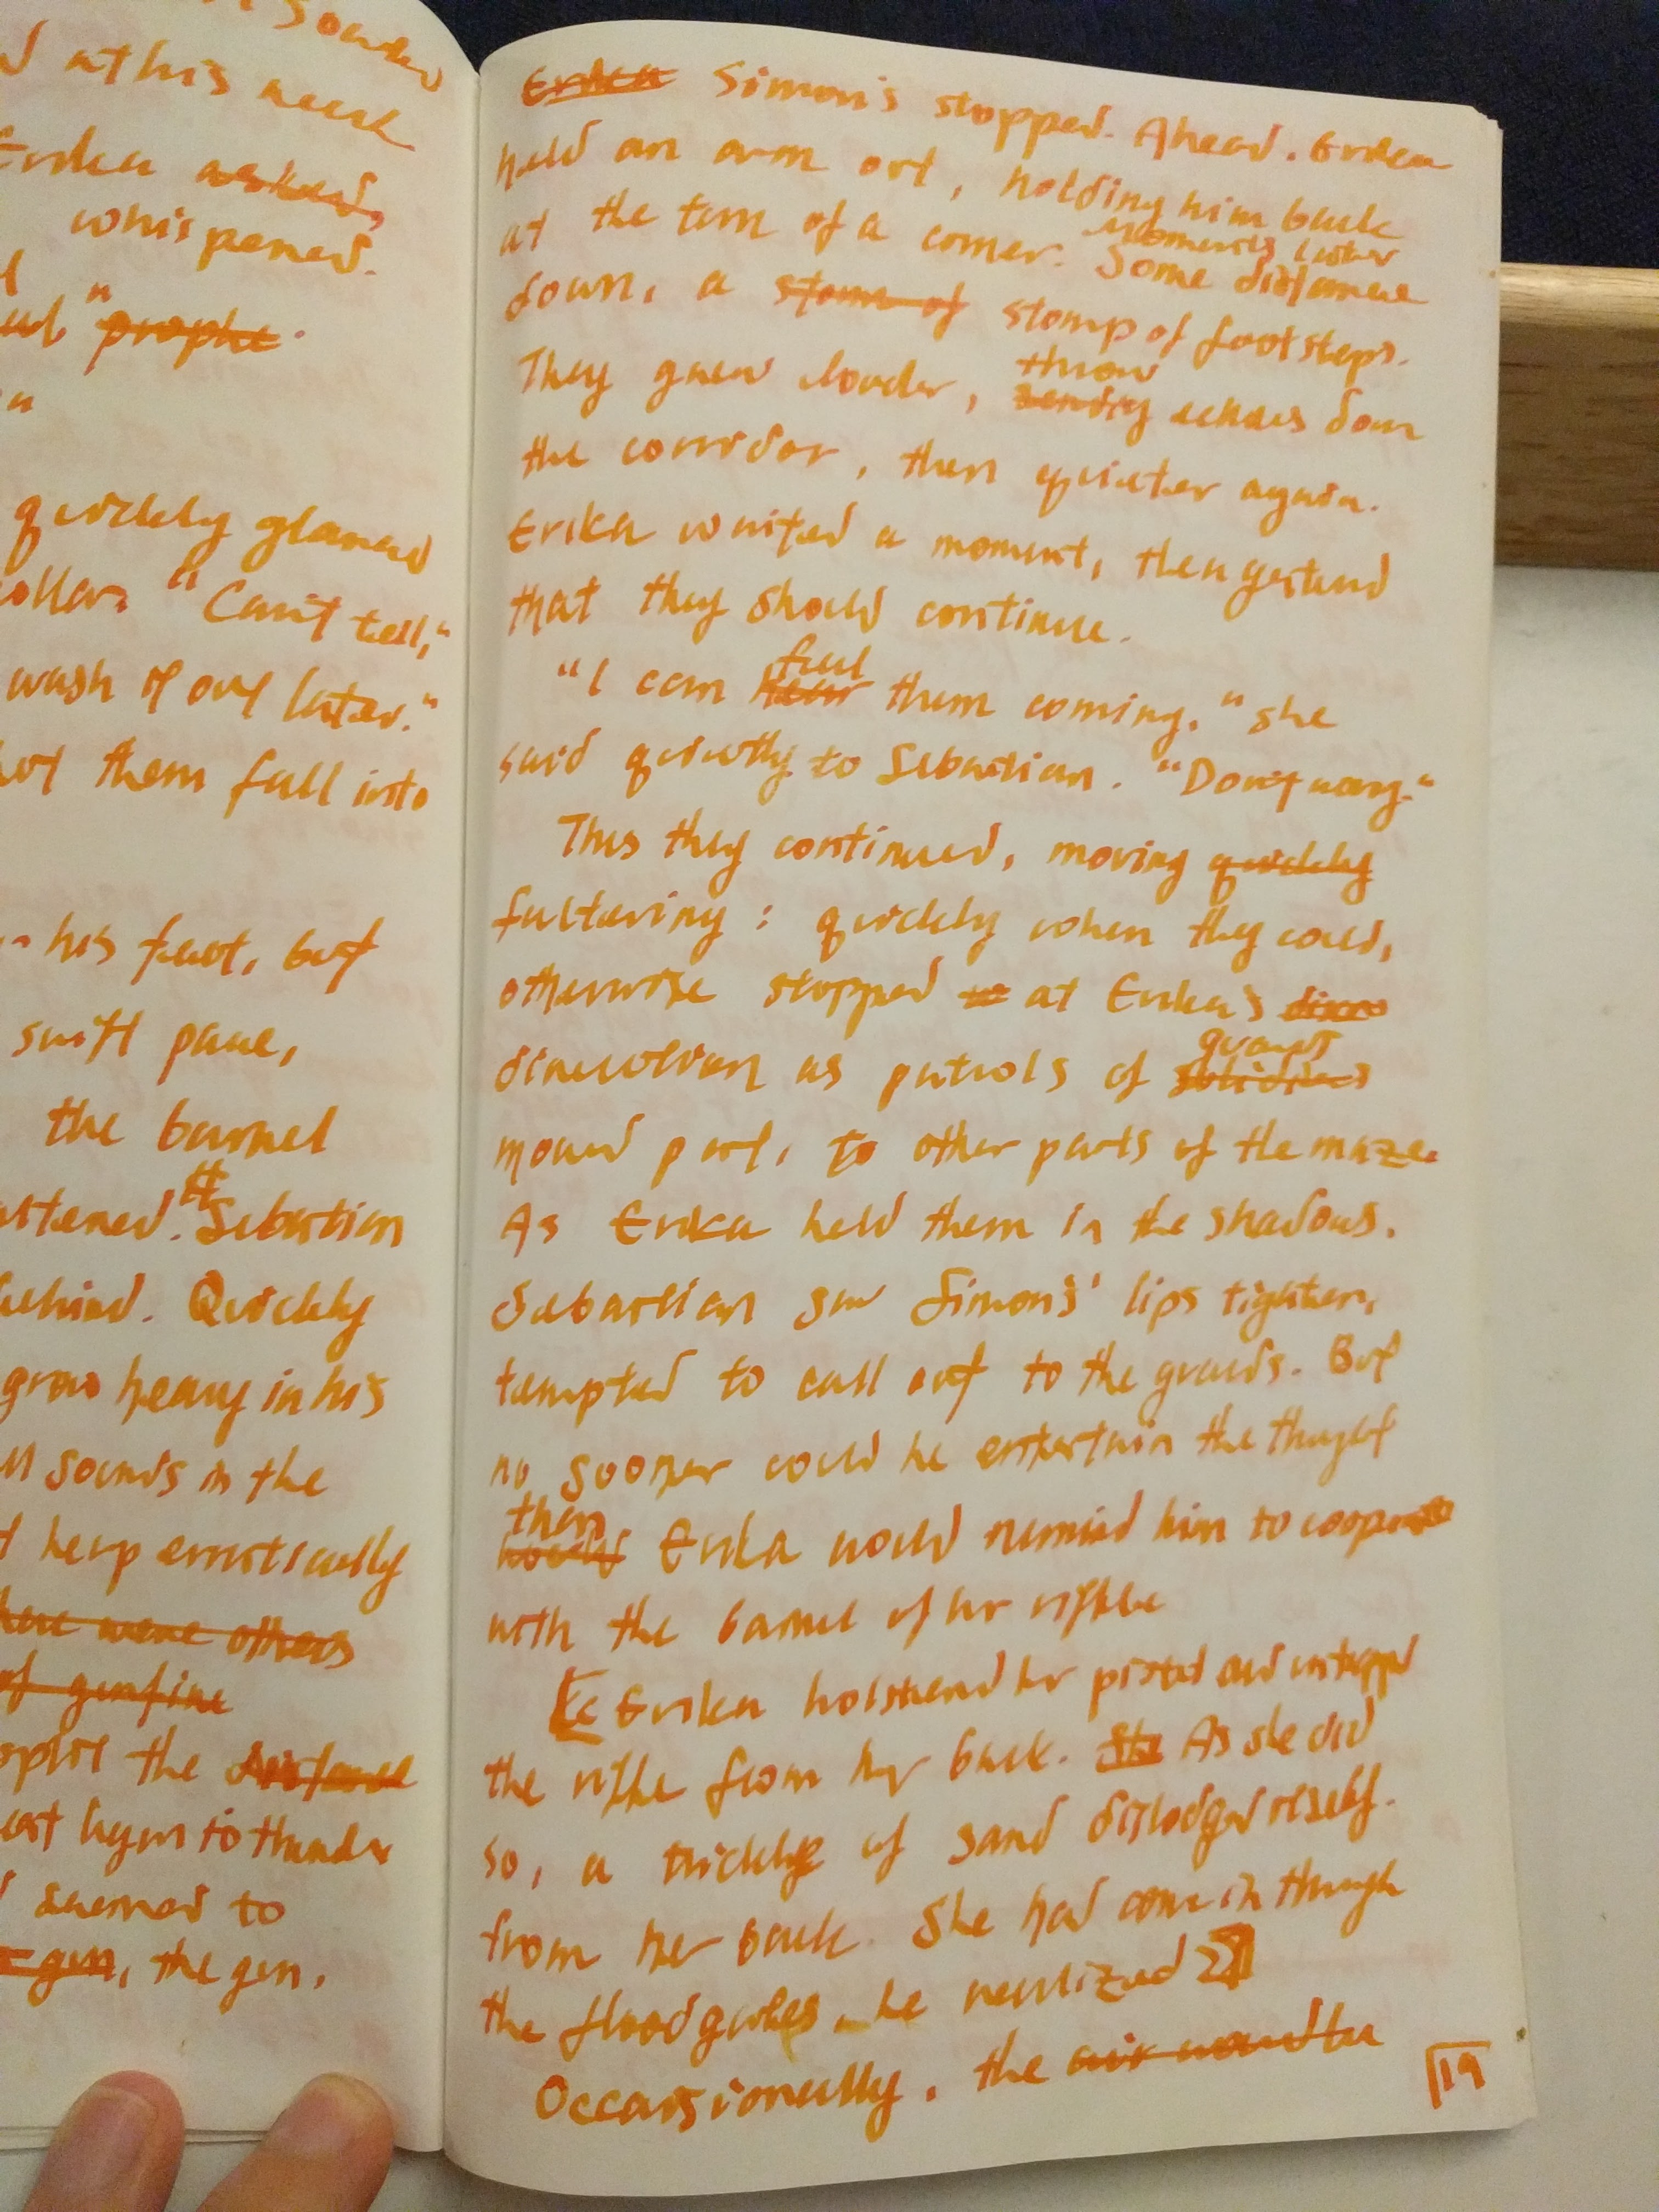 sounded
at his neck
Erika asked,
whispered.
"prophe.
"
quickly glanced
collar. "Can't tell,"
wash it out later."
them fall into
his feet, but
swift pace,
the barrel
Sebastian
behind. Quickly
grow heavy in his
sounds in the
keep erratically
here were others
of gunfire
split the distance
to thunder
seemed to
gun, the gun.
Erika Simon's stopped. Ahead. Erika
held an arm out, holding him back
at the turn of a corner. Moments later Some distance
down, a stom of stomp of footsteps.
They grew louder, throw sending echoes down
the corridor, then quieter again.
Erika waited a moment, then gestured
that they should continue.
"I can feel hear them coming." she
said quietly to Sebastian. "Don't worry."
Thus they continued, moving quickly
faltering: quickly when they could,
otherwise stopped to at Erika's direc
direction as patrols of guards soldiers
moved past, to other parts of the maze.
As Erika held them in the shadows.
Sebastian saw Simons' lips tighten,
tempted to call out to the guards. But
no sooner could he entertain the thought
then would Erika would remind him to cooperate
with the barrel of her rifle
[Erika holstered her pistol and unstrapped
the rifle from her back. She As she did
so, a trickle of sand dislodged itself.
from her back. She had come in through
the floodgates, he realized]
Occassionally, the air would
19